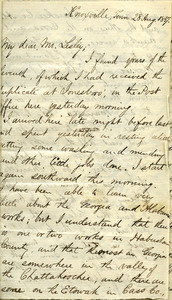 Knoxville, Tenn 28 Aug 1857
My dear Mr. Lesley,
I found yours of the
seventh, of which I had received the
duplicate at Jonesboro, in the Post
office here yesterday morning.
I arrived here late night before last
and spent yesterday in resting
getting some washing and mending
and other little jobs done. I start
again southward this morning.
I have been able to learn very
little about the Georgia and Alabama
works; but I understand that there
is one or two works in Habersham
County, and that the most in Georgia
are somewhere in the valley of
the Chattahoochee, and there are
some on the Etowah in Cass Co.